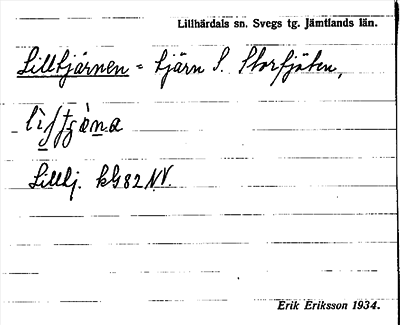 Lillhärdals sn. Svegs tg. Jämtlands län.
Lilltjärnen = tjärn S. Storsjöten,
Lilltj. kG 82 NV.
Erik Eriksson 1934.